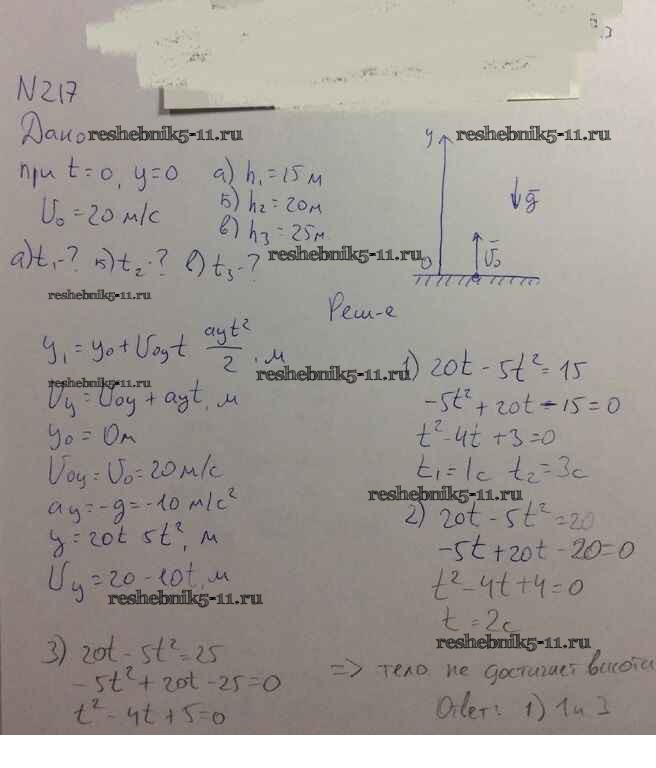 N217
Дано reshebnik5-11.ru
при t=0, y=0 а) h₁=15м
U₀=20м/с б) h₂=20м
в) h₃=25м
а)t₁-? б)t₂-? в)t₃-? reshebnik5-11.ru
reshebnik5-11.ru
y reshebnik5-11.ru
g
0 U₀
Реш-е
y₁=y₀+U₀yt ayt²/2, м
reshebnik5-11.ru
reshebnik5-11.ru
Uy=U₀y+ayt, м
y₀=0м
U₀y=U₀=20м/с
ay=-g=-10м/с²
y=20t 5t², м
Uy=20-10t, м
reshebnik5-11.ru
1) 20t-5t²=15
-5t²+20t-15=0
t²-4t+3=0
t₁=1c t₂=3c
reshebnik5-11.ru
2) 20t-5t²=20
-5t+20t-20=0
t²-4t+4=0
t=2c
reshebnik5-11.ru
3) 20t-5t²=25
-5t²+20t-25=0
t²-4t+5=0
=> тело не достигает высоты
Ответ: 1) 1 и 3